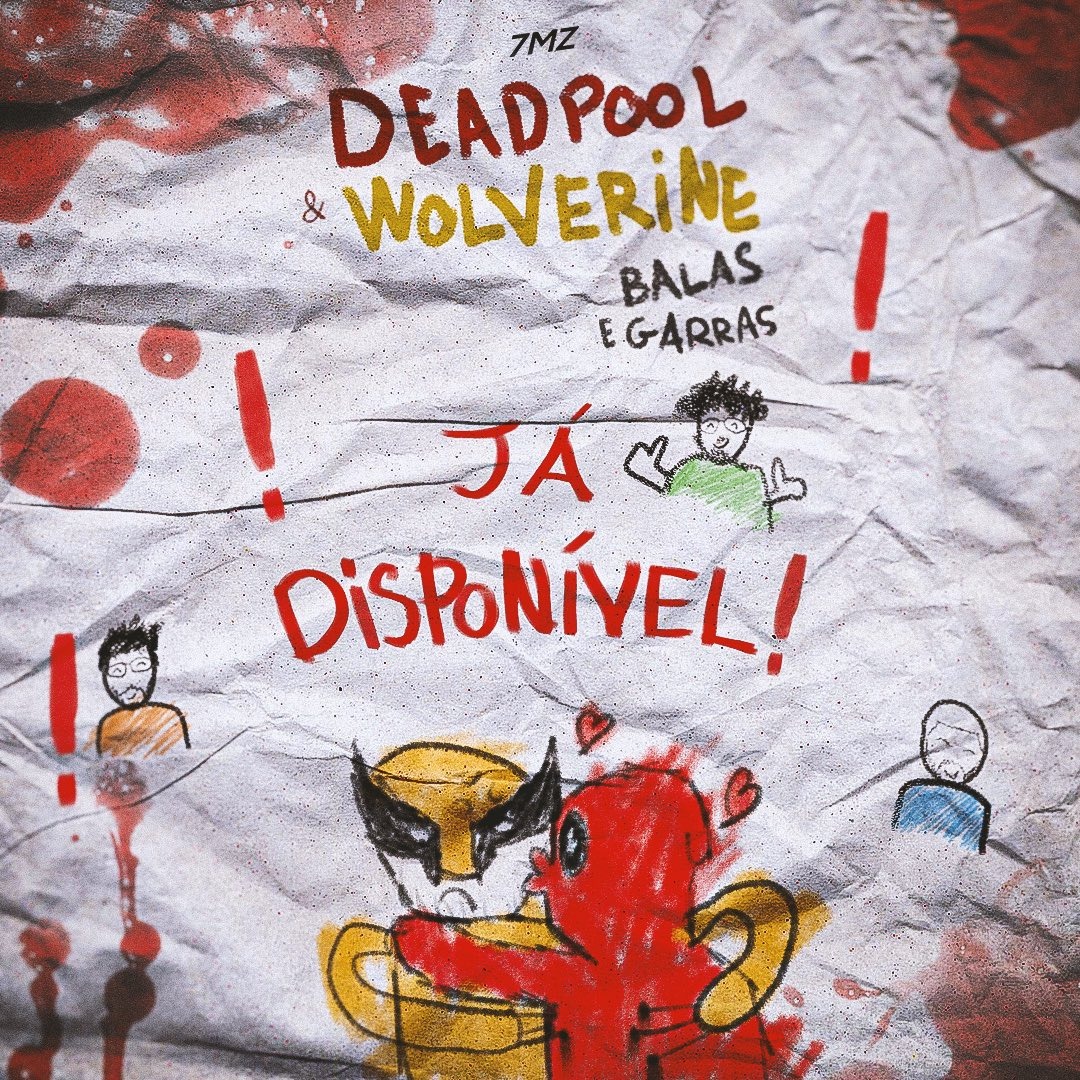 7MZ
DEADPOOL
& WOLVERiNE
BALAS
E GARRAS
JÁ
DiSPONÍVEL!